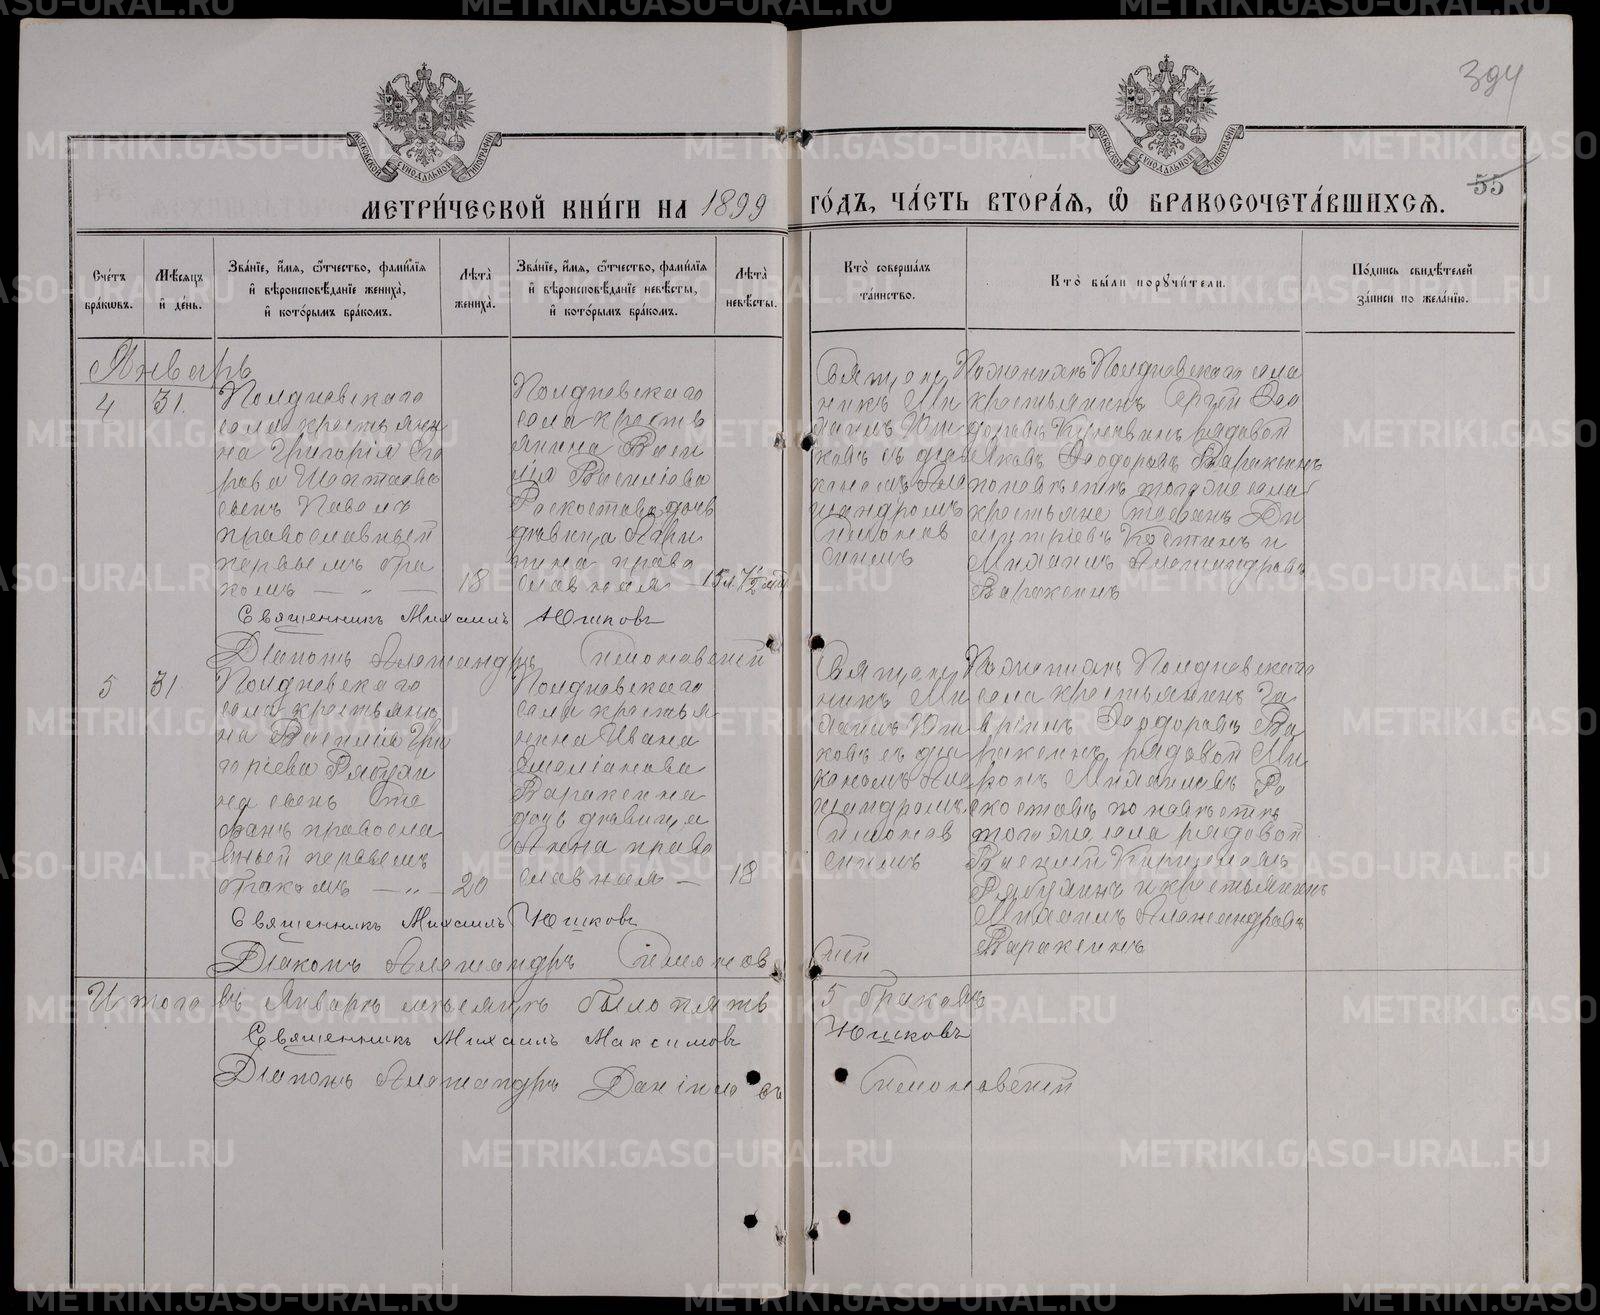 394
55
МЕТРИ́ЧЕСКОЙ КНИ́ГИ НА 1899 ГО́ДЪ, ЧА́СТЬ ВТОРА́Я, Ѿ БРАКОСОЧЕТА́ВШИХСЯ.
Сче́тъ бра́ковъ.
Мѣ́сяцъ и́ де́нь.
Зва́нїе, и́мя, ѻ́тчество, фами́лїя и́ вѣроисповѣ́данїе жениха̀, и́ кото́рымъ бра́комъ.
Лѣ́та̀ жениха̀.
Зва́нїе, и́мя, ѻ́тчество, фами́лїя и́ вѣроисповѣ́данїе невѣ́сты, и́ кото́рымъ бра́комъ.
Лѣ́та̀ невѣ́сты.
Кто̀ соверша́лъ та́инство.
Кто̀ бы́ли порꙋчи́тели.
По́дпись свидѣ́телей за́писи по жела́нїю.
Январь
4
31.
Полдневскаго
села крестьяни
на Григорія Его
рова
сынъ Павелъ
православный
первымъ бра
комъ — „ —
18
Полдневскаго
села крестья
янина Васи
лія Василіева
дочь
дѣвица Ири
на право
славная —
15 л 7½ м
Священ
никъ Ми
хаилъ Юш
ковъ съ діа
кономъ Але
ксандромъ
Симонов
скимъ
По женихѣ Полдневскаго села
крестьянинъ Сергѣй Ѳео
доровъ рядовой
Яковъ Ѳеодоровъ Варакинъ
по невѣстѣ того же села
крестьяне Стефанъ Ди
митріевъ Костинъ и
Михаилъ Александровъ
Варакинъ
Священникъ Михаилъ Юшковъ
Діаконъ Александръ Симоновскій
5
31
Полдневскаго
села крестьяни
на Василія Гри
горіева Рябухи
на сынъ Сте
фанъ правосла
вный первымъ
бракомъ — „ —
20
Полдневскаго
села крестья
нина Ивана
Емеліанова
Варакина
дочь дѣвица
Анна право
славная —
18
Священ
никъ Ми
хаилъ Юш
ковъ съ діа
кономъ Але
ксандромъ
Симонов
скимъ
По женихѣ Полдневскаго
села крестьянинъ Га
вріилъ Ѳеодоровъ Ва
ракинъ, рядовой Ми
ронъ Михаиловъ
по невѣстѣ
того же села рядовой
Василій
Рябухинъ и крестьянинъ
Михаилъ Александровъ
Варакинъ
Священникъ Михаилъ Юшковъ
Діаконъ Александръ Симоновскій
Итого въ Январѣ мѣсяцѣ было пять 5 браковъ
Священникъ Михаилъ Максимовъ Юшковъ
Діаконъ Александръ Даніиловъ Симоновскій
METRIKI.GASO-URAL.RU